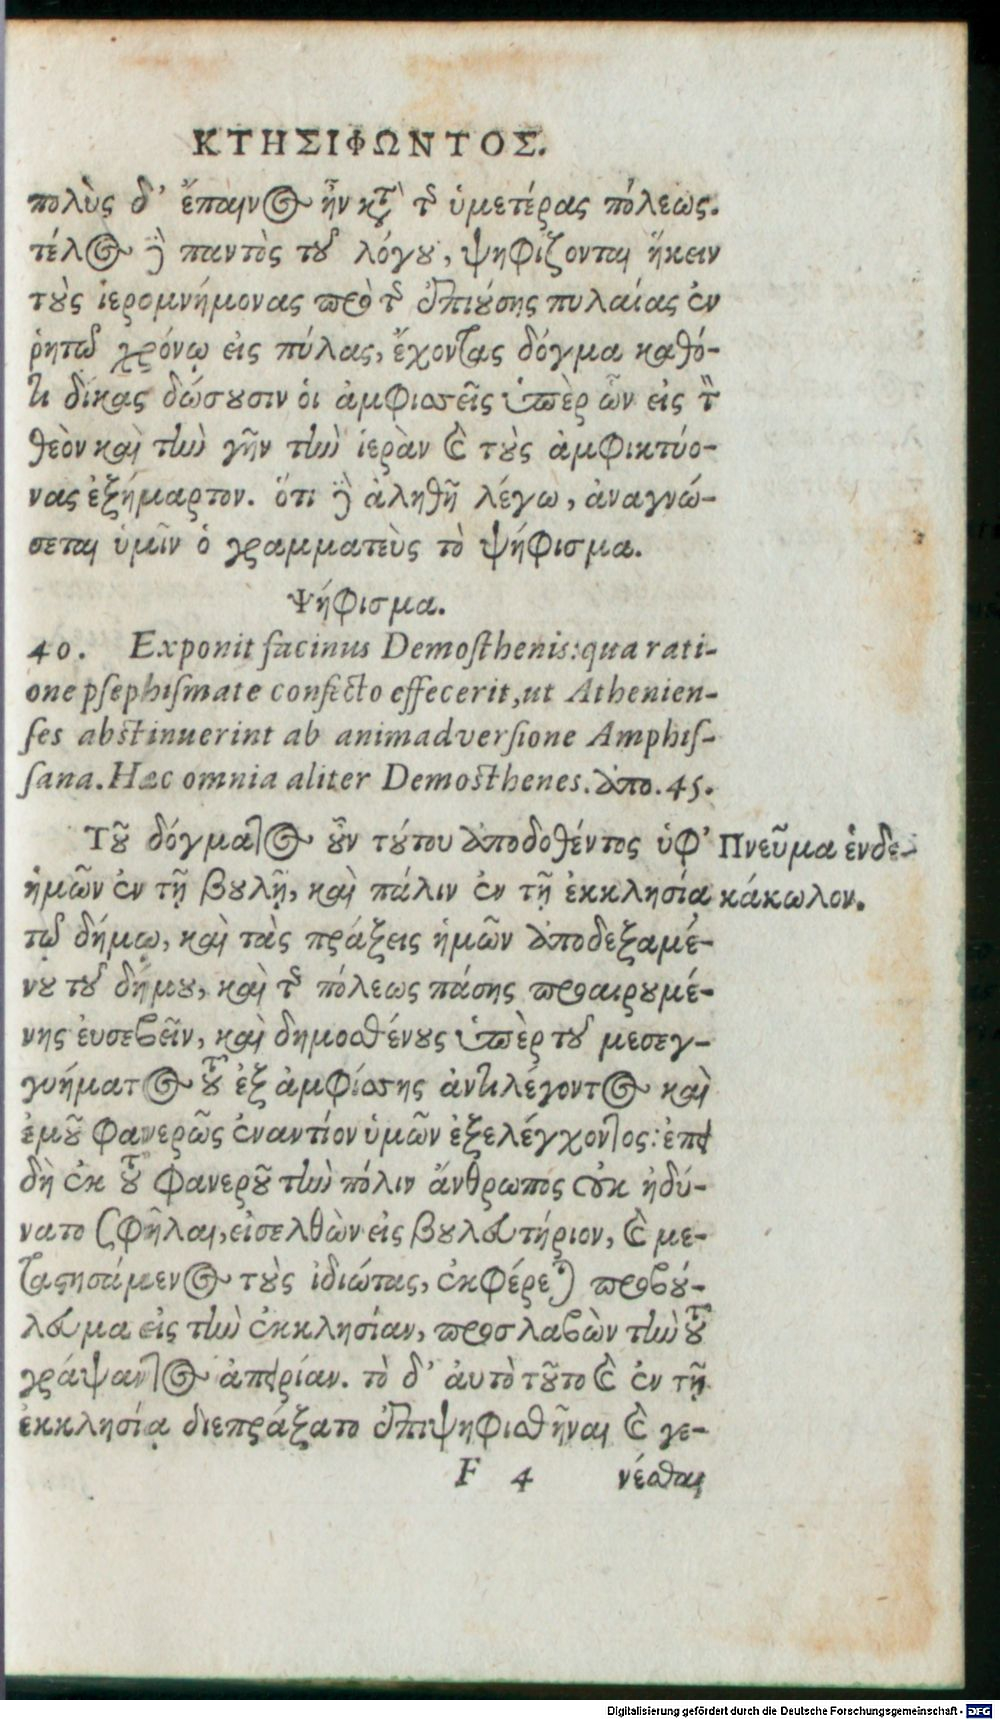 ΚΤΗΣΙΦΩΝΤΟΣ.
πολὺς δ’ ἔπαινος ἦν κτὰ τῆς ὑμετέρας πόλεως.
τέλος δὲ παντὸς τοῦ λόγου, ψηφίζονται ἥκειν
τοὺς ἱερομνήμονας πρὸ τῆς ἐπιούσης πυλαίας ἐν
ῥητῷ χρόνῳ εἰς πύλας, ἔχοντας δόγμα καθό-
τι δίκας δώσουσιν οἱ ἀμφισσεῖς ὑπὲρ ὧν εἰς τὸν
θεὸν καὶ τὴν γῆν τὴν ἱερὰν καὶ τοὺς ἀμφικτύο-
νας ἐξήμαρτον. ὅτι δὲ ἀληθῆ λέγω, ἀναγνώ-
σεται ὑμῖν ὁ γραμματεὺς τὸ ψήφισμα.
Ψήφισμα.
40. Exponit facinus Demosthenis: qua rati-
one psephismate confecto effecerit, ut Athenien-
ses abstinuerint ab animadversione Amphis-
sana. Hæc omnia aliter Demosthenes. ἀπο. 45.
Τοῦ δόγματος οὖν τούτου ἀποδοθέντος ὑφ’
ἡμῶν ἐν τῇ βουλῇ, καὶ πάλιν ἐν τῇ ἐκκλησία
τῷ δήμῳ, καὶ τὰς πράξεις ἡμῶν ἀποδεξαμέ-
νου τοῦ δήμου, καὶ τῆς πόλεως πάσης προαιρουμέ-
νης ἐυσεβεῖν, καὶ δημοσθένους ὑπὲρ τοῦ μεσεγ-
γυήματος τοῦ ἐξ ἀμφίσσης ἀντιλέγοντος καὶ
ἐμοῦ φανερῶς ἐναντίον ὑμῶν ἐξελέγχοντος: ἐπει
δὴ ἐκ τοῦ φανεροῦ τὴν πόλιν ἄνθρωπος οὐκ ἠδύ-
νατο σφῆλαι, εἰσελθὼν εἰς βουλευτήριον, καὶ με-
ταστησάμενος τοὺς ἰδιώτας, ἐκφέρεται προβού-
λευμα εἰς τὴν ἐκκλησίαν, προσλαβὼν τὴν τοῦ
γράψαντος ἀπειρίαν. τὸ δ’ ἀυτὸ τοῦτο καὶ ἐν τῇ
ἐκκλησίᾳ διεπράξατο ἐπιψηφισθῆναι καὶ γε-
F 4 νέσθαι
Πνεῦμα ἑνδε-
κάκωλον.
Digitalisierung gefördert durch die Deutsche Forschungsgemeinschaft - DFG